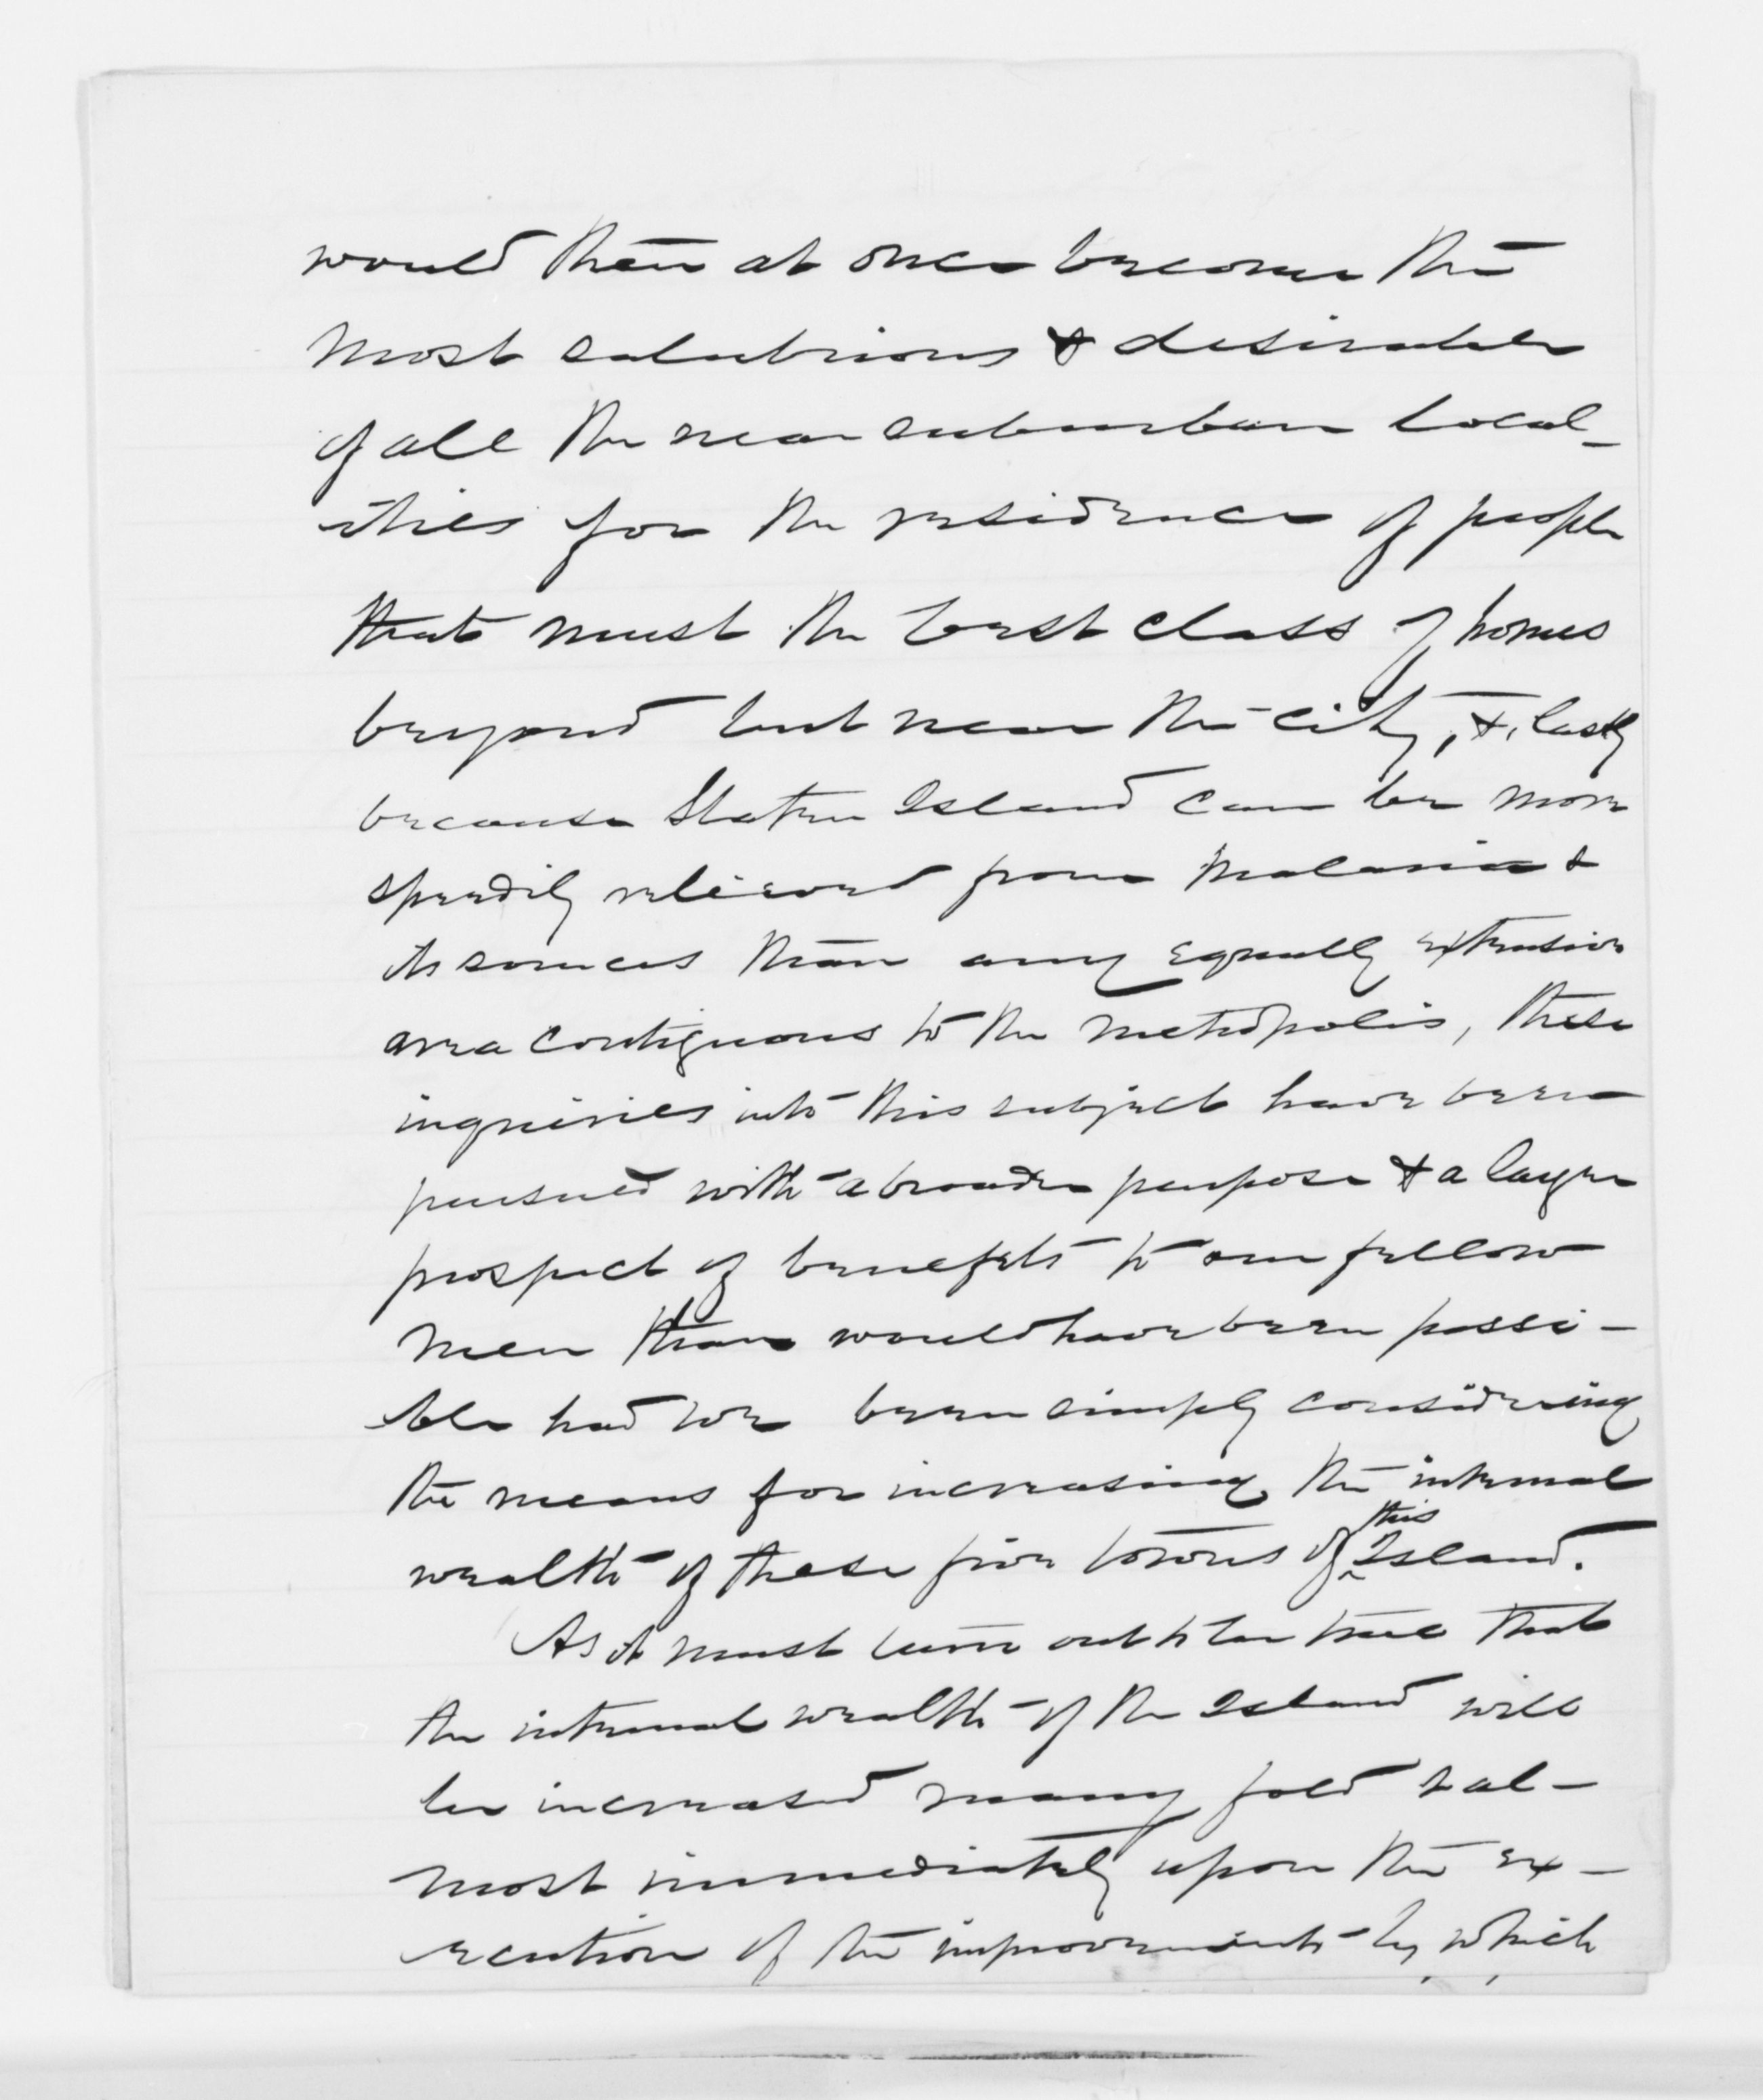 would then at once become the
most salubrious & desirable
of all the near suburban local-
ities for the residence of people
that must the best class of homes
beyond but near the city, &, lastly
because Staten Island can be more
speedily relieved from malaria &
its sources than any equally extensive
area contiguous to the metropolis, these
inquiries into this subject have been
pursued with a broader purpose & a larger
prospect of benefits to our fellow
men than would have been possi-
ble had we been simply considering
the means for increasing the internal
wealth of these five towns of this Island.
As it must turn out to be true that
the internal wealth of the Island will
be increased many fold & al-
most immediately upon the ex-
ecution of the improvements by which